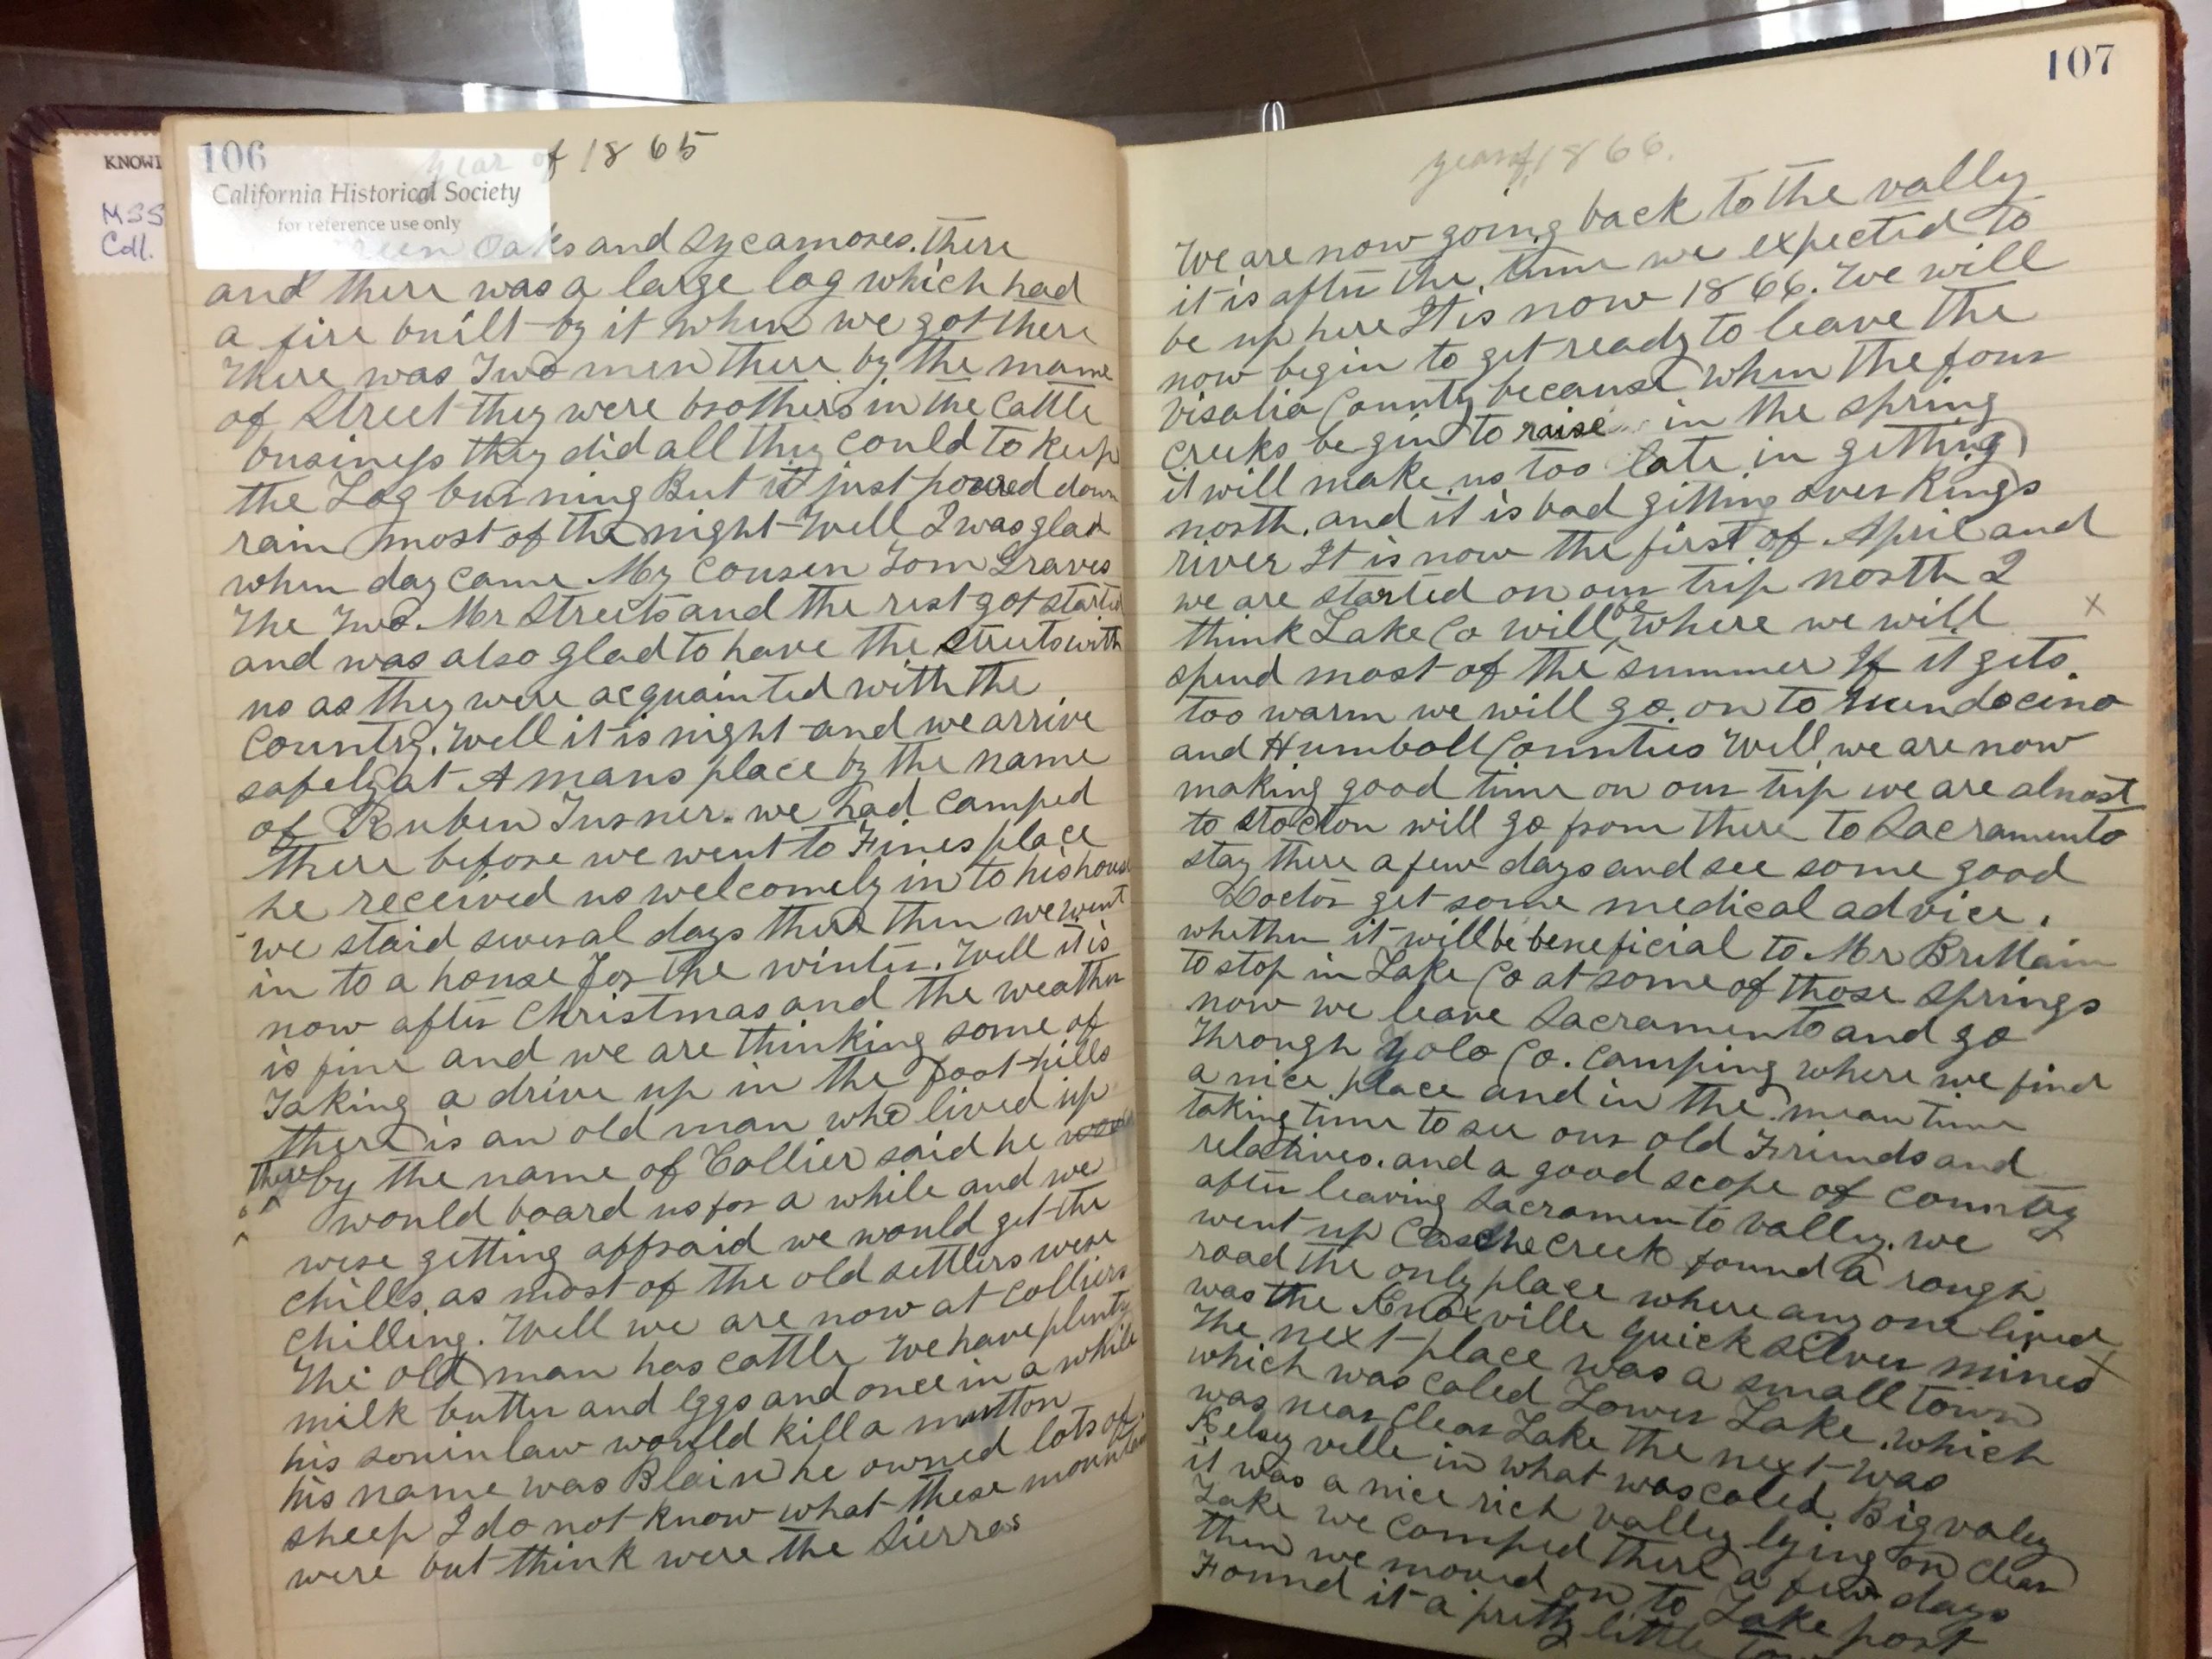 107
106
year of 1865
KNOWL
MSS
Coll.
California Historical Society
for reference use only
Oaks and Sycamores. there
and there was a large log which had
a fire built by it when we got there
There was Two men there by the name
of Street they were brothers in the Cattle
business they did all they could to keep
the Log burning But it just poured down
rain most of the night Well I was glad
when day came My Cousen Tom Graves
The Two Mr Streets and the rest got started
and was also glad to have the Streets with
us as they were acquainted with the
Country. Well it is night and we arrive
safely at A mans place by the name
of Ruben Turner. we had camped
there before we went to Fines place
he received us welcomely in to his house
we staid several days there then we went
in to a house for the winter. Well it is
now after Christmas and the weather
is fine and we are thinking some of
Taking a drive up in the foot hills
there is an old man who lived up
there by the name of Collier said he
would board us for a while and we
were getting affraid we would get the
chills, as most of the old settlers were
chilling. Well we are now at Colliers
The old man has cattle We have plenty
milk butter and Eggs and once in a while
his soninlaw would kill a mutton
his name was Blain he owned lots of
sheep I do not know what these mountain
were but think were the Sierras
year of 1866.
We are now going back to the vally
it is after the time we expected to
be up here It is now 1866. We will
now begin to get ready to leave the
Visalia County because when the four
Creeks begin to raise in the spring
it will make us too late in getting
north. and it is bad gitting over Kings
river It is now the first of April and
we are started on our trip north I
think Lake Co will be where we will
x
spend most of the summer If it gets
too warm we will go on to Mendocino
and Humboll Counties Well we are now
making good time on our trip we are almost
to Stocton will go from there to Sacramento
stay there a few days and see some good
Doctor get some medical advice.
whether it will be beneficial to Mr Brittain
to stop in Lake Co at some of those Springs
now we leave Sacramento and go
Through Yolo Co. Camping where we find
a nice place and in the mean time
taking time to see our old Friends and
relatives. and a good scope of County
after leaving Sacramento valley. we
went up Casche Creek found a rough
road the only place where any one lived
was the Knoxville Quick Silver mines x
The next place was a small town
which was caled Lower Lake. which
was near Clear Lake the next was
Kelsey ville in what was caled Big valey
it was a nice rich valley lying on Clear
Lake we Camped there a few days
then we moved on to Lake port
Found it a pretty little